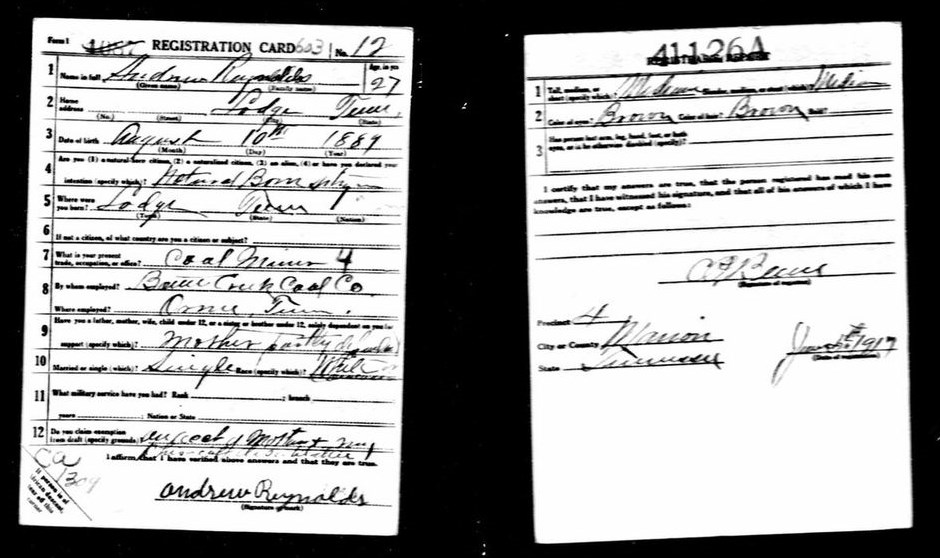 Form 1 REGISTRATION CARD 603 No. 12
1 Name in full Andrew Reynolds Age, in yrs 27
(Given name) (Family name)
2 Home address Lodge Tenn.
(No.) (Street) (City) (State)
3 Date of birth August 10th 1889
(Month) (Day) (Year)
4 Are you (1) a natural-born citizen, (2) a naturalized citizen, (3) an alien, (4) or have you declared your
intention (specify which)? Natural Born
5 Where were you born? Lodge Tenn
(Town) (State) (Nation)
6 If not a citizen, of what country are you a citizen or subject?
7 What is your present trade, occupation, or office? Coal Miner 4
8 By whom employed? Coal Co.
Where employed? Orme, Tenn.
9 Have you a father, mother, wife, child under 12, or a sister or brother under 12, solely dependent on you for
support (specify which)? Mother partly
10 Married or single (which)? Single Race (specify which)? White
11 What military service have you had? Rank ; branch
years ; Nation or State
12 Do you claim exemption from draft (specify grounds)?
I affirm that I have verified above answers and that they are true.
Andrew Reynolds
(Signature or mark)
If person is of
African descent,
tear off this
corner
41126A
REGISTRAR'S REPORT
1 Tall, medium, or short (specify which)? Medium Slender, medium, or stout (which)? Medium
2 Color of eyes? Brown Color of hair? Brown Bald?
3 Has person lost arm, leg, hand, foot, or both
eyes, or is he otherwise disabled (specify)?
I certify that my answers are true, that the person registered has read his own
answers, that I have witnessed his signature, and that all of his answers of which I have
knowledge are true, except as follows:
(Signature of registrar)
Precinct 4
City or County Marion
State Tennessee June 5th 1917
(Date of registration)